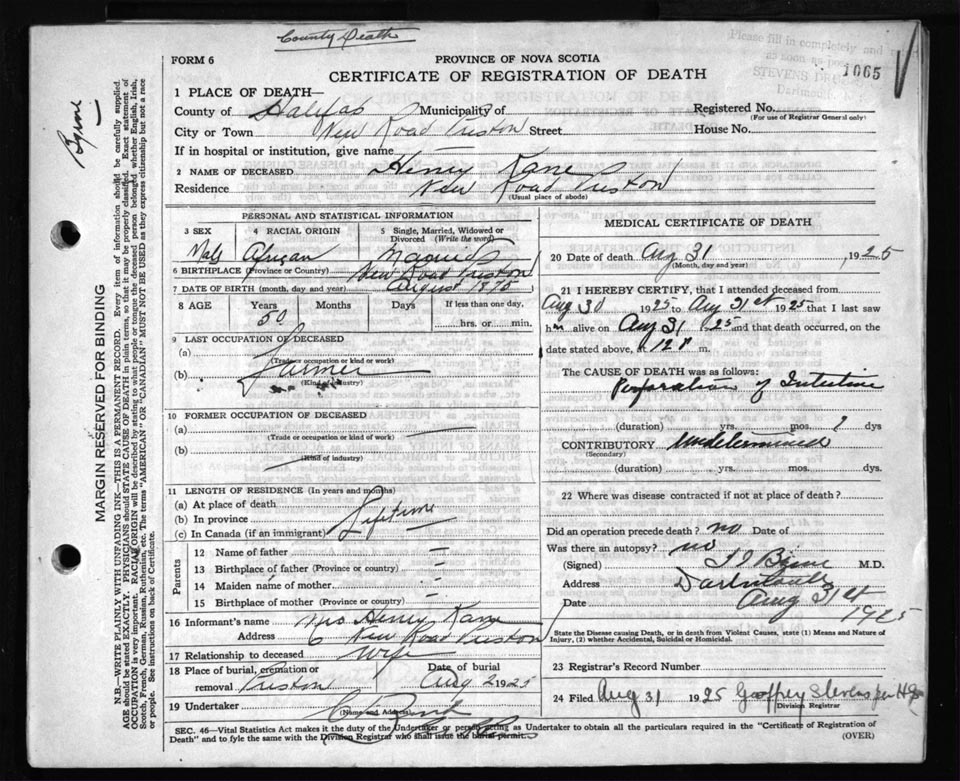 County Death
FORM 6
PROVINCE OF NOVA SCOTIA
CERTIFICATE OF REGISTRATION OF DEATH
Please fill in completely and
as soon as
STEVENS
Dartmouth
1065
Byrne
MARGIN RESERVED FOR BINDING
N.B.—WRITE PLAINLY WITH UNFADING INK—THIS IS A PERMANENT RECORD. Every item of information should be carefully supplied.
AGE should be stated EXACTLY. PHYSICIANS should STATE CAUSE OF DEATH in plain terms, so that it may be properly classified. Exact statement of
OCCUPATION is very important. RACIAL ORIGIN will be described by stating to what people or tongue the deceased person belonged whether English, Irish,
Scotch, French, German, Russian, Ruthenian, etc. The terms "AMERICAN" OR "CANADIAN" MUST NOT BE USED as they express citizenship but not a race
or people. See instructions on back of Certificate.
1 PLACE OF DEATH—
County of Halifax Municipality of Registered No.
(For use of Registrar General only)
City or Town New Road Preston Street House No.
If in hospital or institution, give name
2 NAME OF DECEASED Henry Kane
Residence New Road Preston
(Usual place of abode)
PERSONAL AND STATISTICAL INFORMATION
3 SEX 4 RACIAL ORIGIN 5 Single, Married, Widowed or
Divorced (Write the word)
Male African Married
6 BIRTHPLACE (Province or Country) New Road Preston
7 DATE OF BIRTH (month, day and year) August 1875
8 AGE Years Months Days If less than one day,
50 hrs. or min.
9 LAST OCCUPATION OF DECEASED
(a)
(Trade or occupation or kind of work)
Farmer
(b)
(Kind of industry)
10 FORMER OCCUPATION OF DECEASED
(a)
(Trade or occupation or kind of work)
(b)
(Kind of industry)
11 LENGTH OF RESIDENCE (In years and months)
(a) At place of death
(b) In province Lifetime
(c) In Canada (if an immigrant)
Parents
12 Name of father —
13 Birthplace of father (Province or country) —
14 Maiden name of mother —
15 Birthplace of mother (Province or country) —
16 Informant's name Mrs Henry Kane
Address New Road Preston
17 Relationship to deceased Wife
18 Place of burial, cremation or Date of burial
removal Preston Aug 2 1925
19 Undertaker
(Name and Address)
MEDICAL CERTIFICATE OF DEATH
20 Date of death Aug 31 1925
(Month, day and year)
21 I HEREBY CERTIFY, that I attended deceased from
Aug 30 1925 to Aug 31st 1925 that I last saw
him alive on Aug 31 1925 and that death occurred, on the
date stated above, at 12 P m.
The CAUSE OF DEATH was as follows:
Perforation of Intestine
(duration) yrs. mos. ? dys
CONTRIBUTORY Undetermined
(Secondary)
(duration) yrs. mos. dys.
22 Where was disease contracted if not at place of death?
Did an operation precede death? no Date of
Was there an autopsy? no
(Signed) Byrne M.D.
Address Dartmouth
Date Aug 31st
1925
State the Disease causing Death, or in death from Violent Causes, state (1) Means and Nature of
Injury, (2) whether Accidental, Suicidal or Homicidal.
23 Registrar's Record Number
24 Filed Aug 31 1925 Geoffrey Stevens per
Division Registrar
SEC. 46—Vital Statistics Act makes it the duty of the Undertaker or person acting as Undertaker to obtain all the particulars required in the "Certificate of Registration of
Death" and to fyle the same with the Division Registrar who shall issue the burial permit.
(OVER)